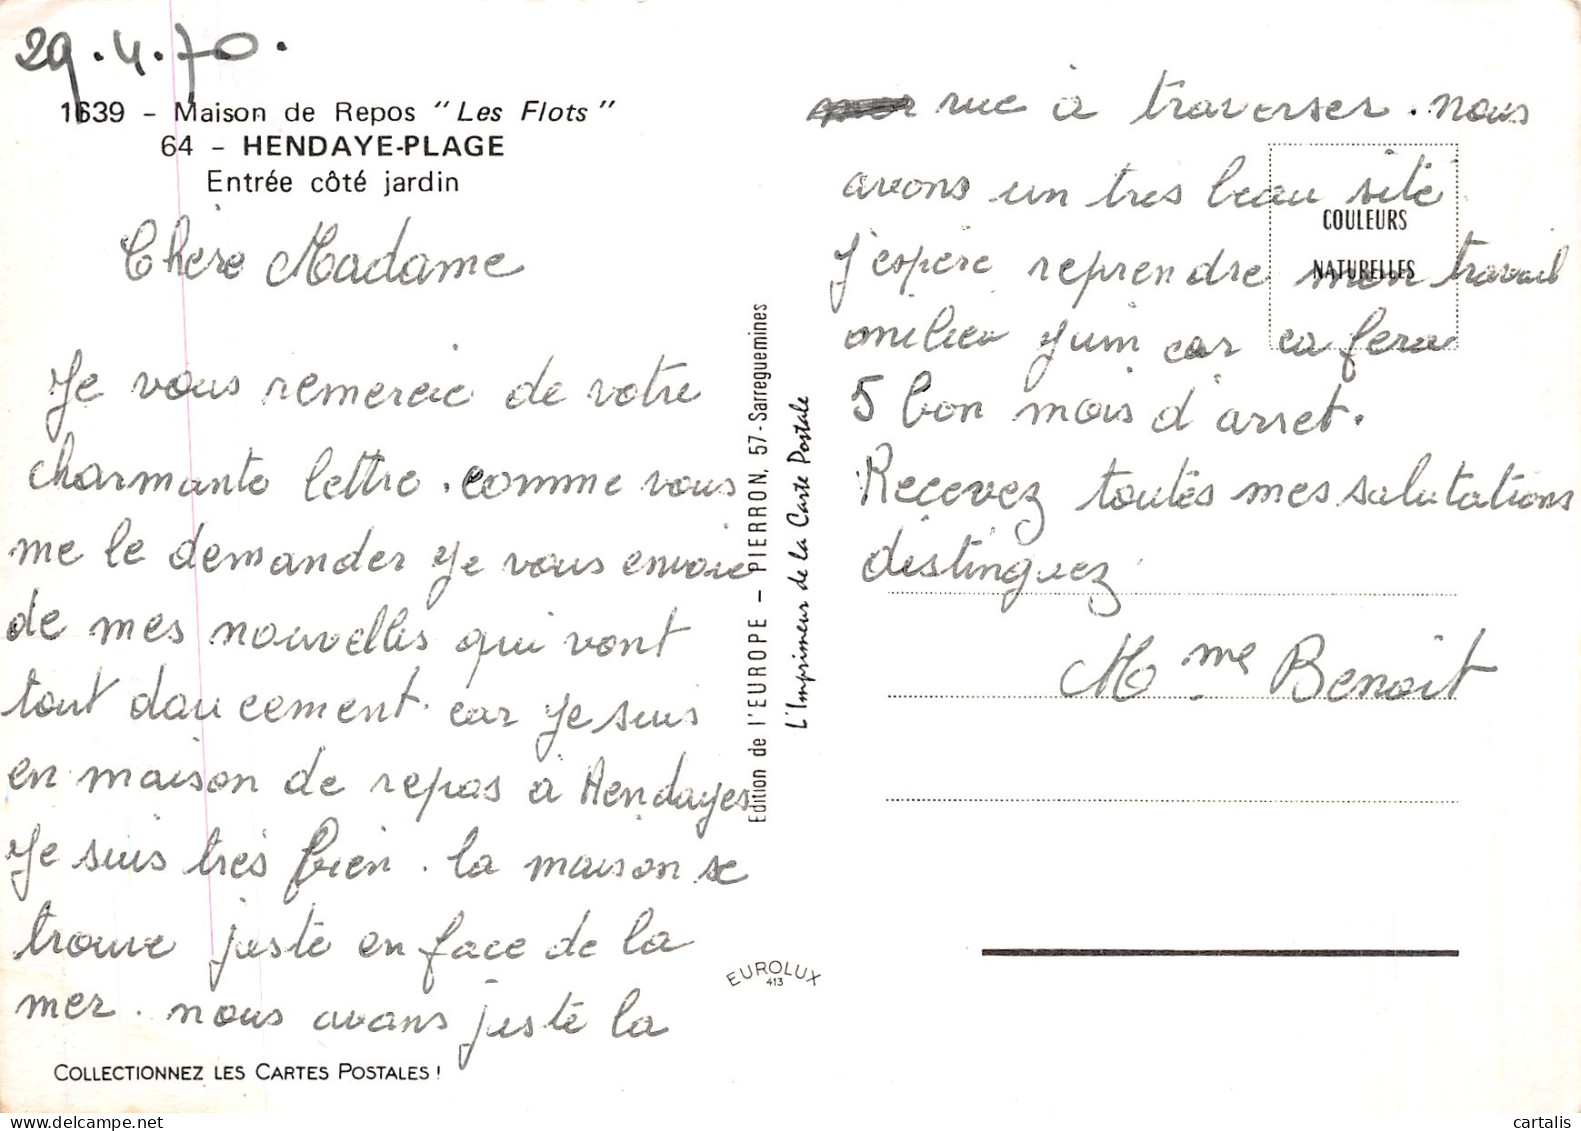 29.4.70.
1639 - Maison de Repos "Les Flots"
64 - HENDAYE-PLAGE
Entrée côté jardin
Chère Madame
Je vous remercie de votre
charmante lettre. comme vous
me le demander je vous envoie
de mes nouvelles qui vont
tout doucement car je suis
en maison de repos à Hendayes
Je suis très bien. la maison se
trouve juste en face de la
mer. nous avons juste la
COLLECTIONNEZ LES CARTES POSTALES !
Edition de l'EUROPE - PIERRON, 57 - Sarreguemines
L'Imprimeur de la Carte Postale
EUROLUX
413
rue à traverser. nous
avons un très beau sité
COULEURS
J'espère reprendre mon travail
NATURELLES
milieu Juin car ca fera
5 bon mois d'arret.
Recevez toutes mes salutations
distinguez
Mme Benoit